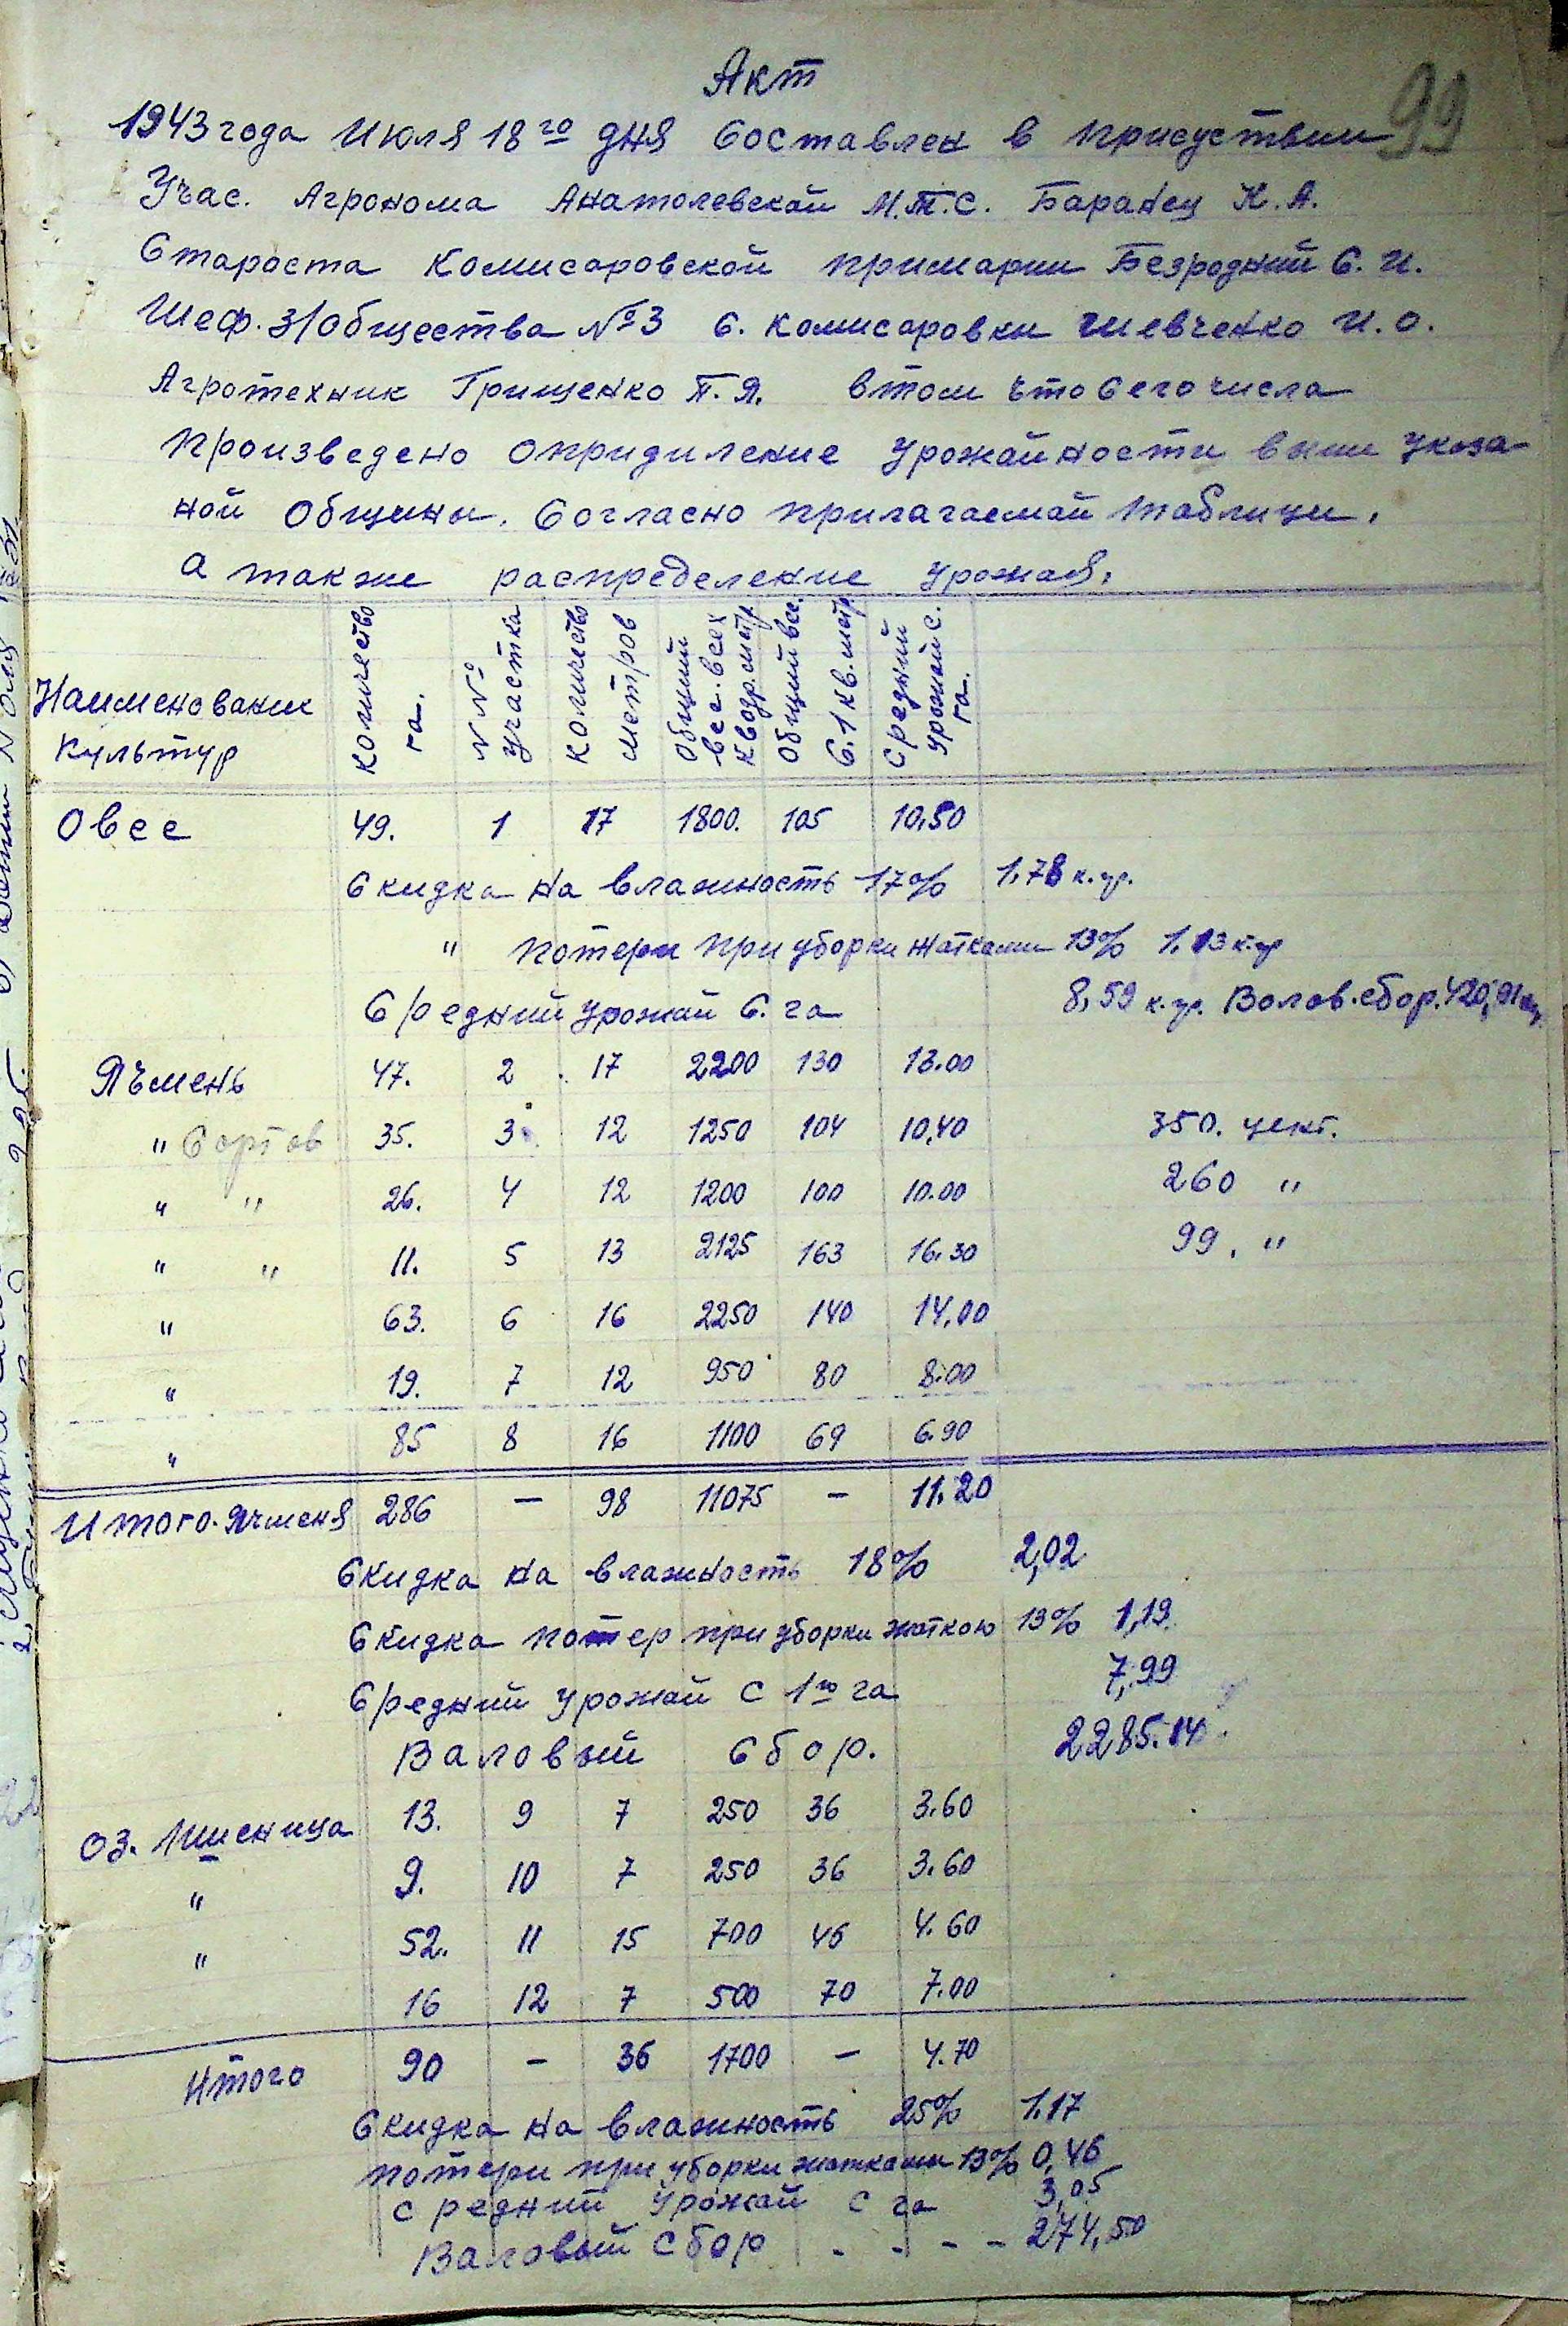 Акт
99
1943 года Июля 18го дня Составлен в присуствии
Учас. Агронома Анатолевской М.Т.С. Баранец К.А.
Староста Комисаровской примарии Безродний С.И.
Шеф. З/Общества №3 С. Комисаровки Шевченко И.О.
Агротехник Грищенко П.Я. втом что Сего числа
произведено опридиление урожайности выши указа-
ной Общины. Согласно прилагаемой таблици.
а также распределение урожая.
Наименовании Культур | Количество га. | №№ участка | Количество метров | Общий вес. всех квадр. метр. | Общий вес. С. 1 кв. метр. | Средний урожай с. га.
Овес 49. 1 17 1800. 105 10,50
Скидка на влажность 17% 1.78 к.гр.
" потери при уборки жатками 13% 1.13 к.гр
Средний урожай С. га 8,59 к.гр. Волов. сбор. 420,91
Ячмень 47. 2 17 2200 130 13.00
" Сортов 35. 3 12 1250 104 10,40 350. цент.
" " 26. 4 12 1200 100 10.00 260 "
" " 11. 5 13 2125 163 16.30 99. "
" 63. 6 16 2250 140 14,00
" 19. 7 12 950 80 8.00
" 85 8 16 1100 69 6.90
Итого. Ячменя 286 — 98 11075 — 11.20
Скидка на влажность 18% 2,02
Скидка потер при уборки жаткою 13% 1,19
Средний урожай с 1го га 7,99
Валовый Сбор. 2285.14
Оз. Пшеница 13. 9 7 250 36 3.60
" 9. 10 7 250 36 3.60
" 52. 11 15 700 46 4.60
16 12 7 500 70 7.00
Итого 90 — 36 1700 — 4.70
Скидка на влажность 25% 1.17
потери при уборки жатками 13% 0,46
средний урожай с га 3,05
Валовый сбор - - - - 274,50